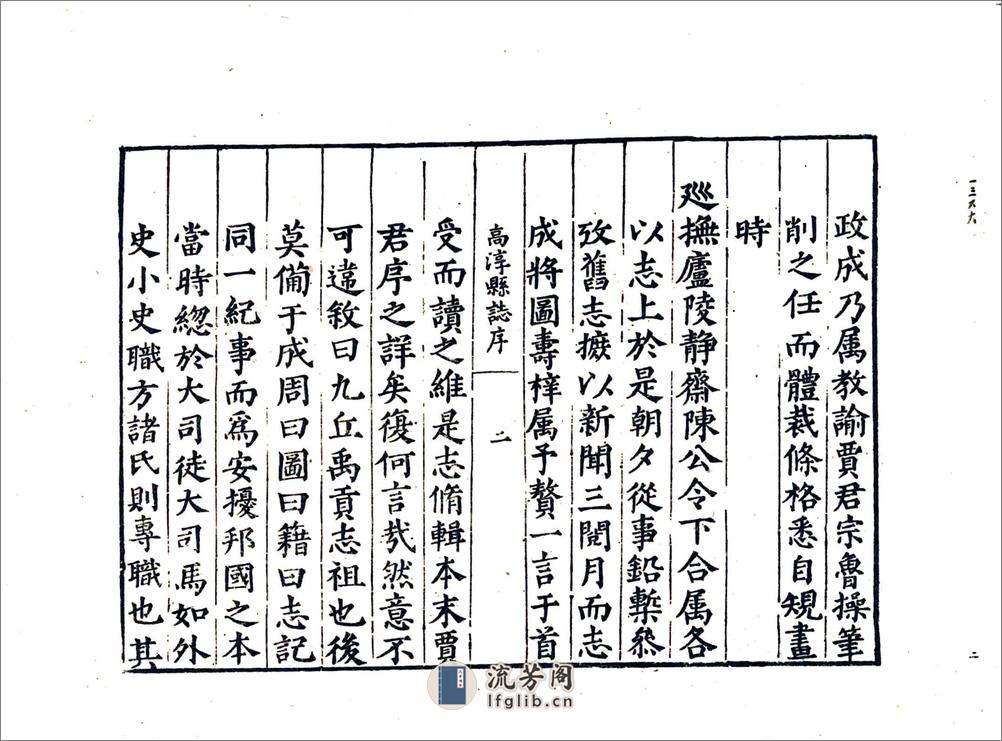 政成乃属教諭賈君宗魯操筆
削之任而體裁條格悉自規畫
時
廵撫廬陵静齋陳公令下合属各
以志上於是朝夕從事鉛槧叅
攷舊志摭以新聞三閱月而志
成將圖壽梓属予贅一言于首
高淳縣誌序
二
受而讀之維是志脩輯本末賈
君序之詳矣復何言㢤然意不
可違敘曰九丘禹貢志祖也後
莫備于成周曰圖曰籍曰志記
同一紀事而爲安擾邦國之本
當時緫於大司徒大司馬如外
史小史職方諸氏則專職也其
二
流芳阁
lfglib.cn